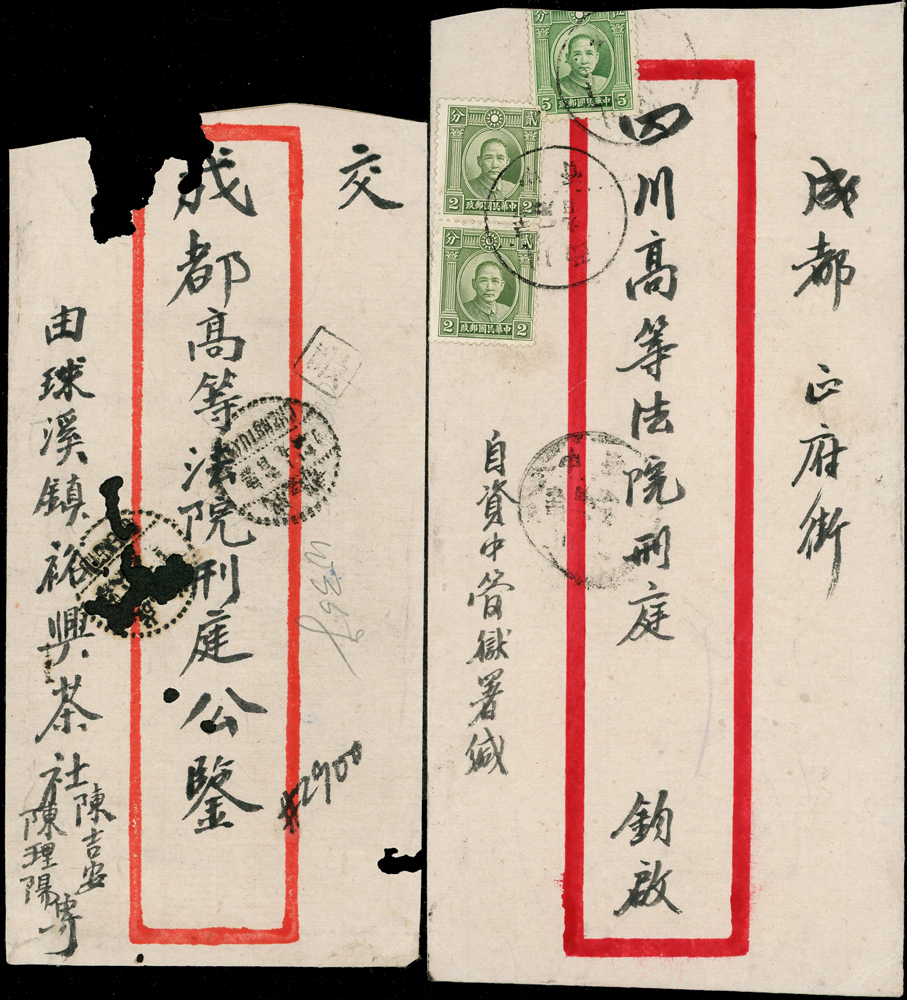 交
成都高等法院刑庭公鑒
由球溪鎮裕興茶社
陳吉安
陳理陽
#2900
成都 正府街
四川高等法院刑庭 鈞啟
自資中管獄署緘
伍 分
5 中華民國郵政 5
貳 分
2 中華民國郵政 2
貳 分
2 中華民國郵政 2